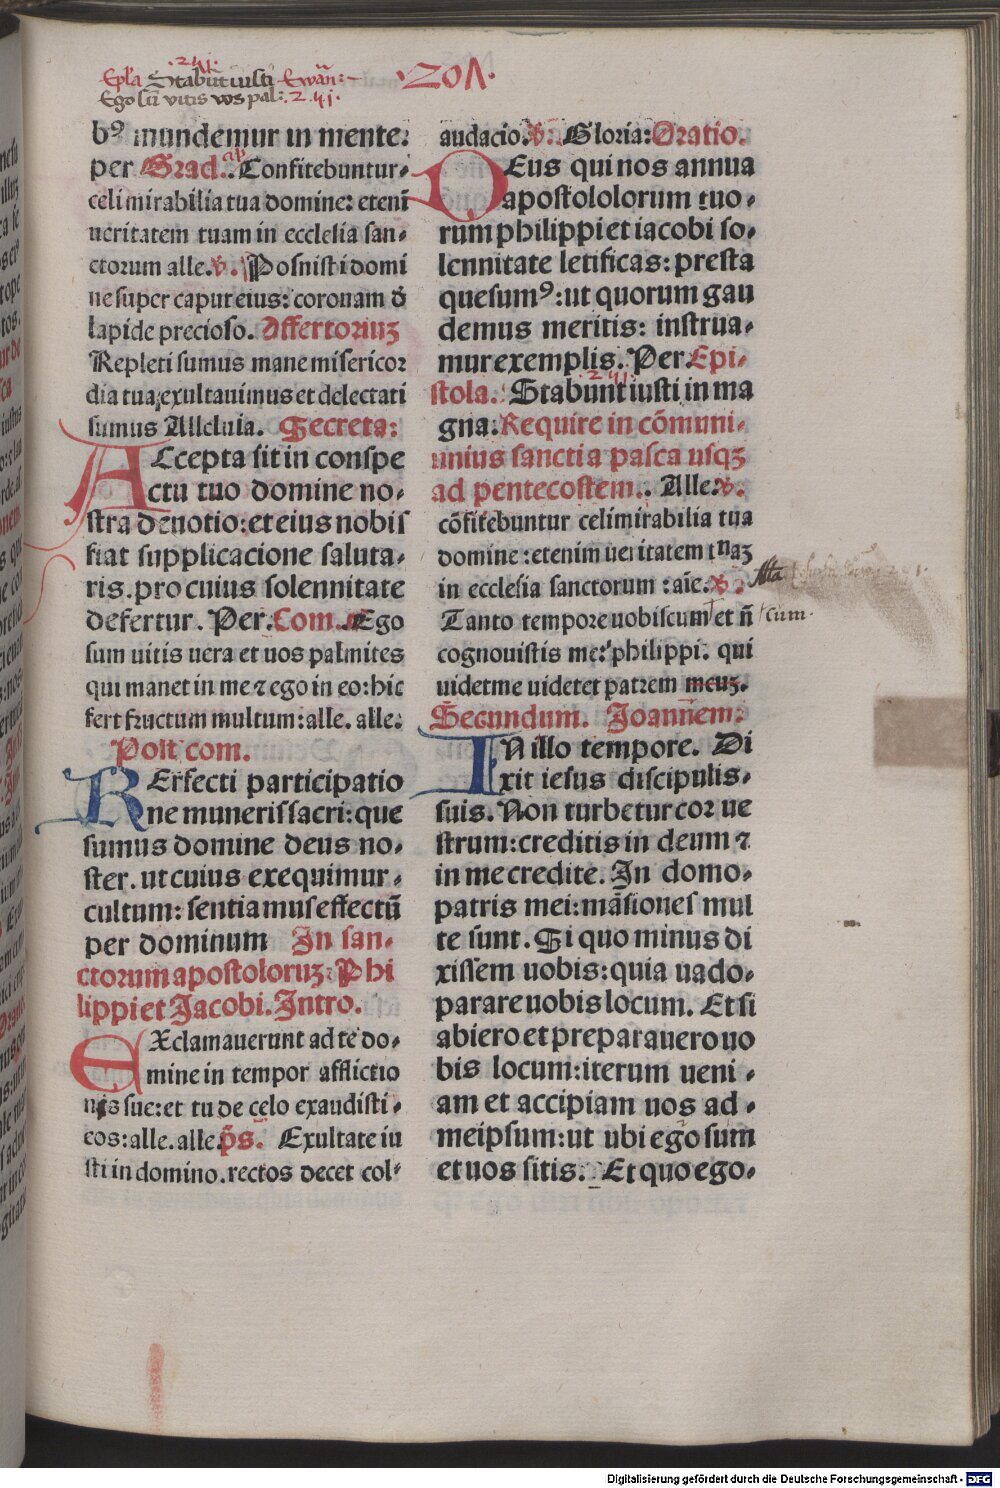 ·241·
Epl'a Stabūt iusti Ewan:
Ego sū vitis vos pal: 2·41·
·201·
bꝰ mundemur in mente:
per Grad. Confitebuntur
celi mirabilia tua domine: eteni
ueritatem tuam in ecclesia san
ctorum alle. v. Posuisti domi
ne super caput eius: coronam d
lapide precioso. Offertoriuꝫ
Repleti sumus mane misericor
dia tua: exultauimus et delectati
sumus Alleluia. Secreta:
ACcepta sit in conspe
ctu tuo domine no
stra deuotio: et eius nobis
fiat supplicacione saluta
ris. pro cuius solennitate
defertur. Per. Com. Ego
sum uitis uera et uos palmites
qui manet in me ⁊ ego in eo: hic
fert fructum multum: alle. alle.
Post com.
REfecti participatio
ne muneris sacri: que
sumus domine deus no
ster. ut cuius exequimur
cultum: sentiamus effectū
per dominum In san
ctorum apostoloruꝫ Phi
lippi et Jacobi. Intro.
EXclamauerunt ad te do
mine in tempor afflictio
nis sue: et tu de celo exaudisti
eos: alle. alle. p̄s. Exultate iu
sti in domino. rectos decet col
audacio. v. Gloria: Oratio.
DEus qui nos annua
apostololorum tuo
rum philippi et iacobi so
lennitate letificas: presta
quesumꝰ: ut quorum gau
demus meritis: instrua
mur exemplis. Per. Epi
·241·
stola. Stabunt iusti in ma
gna: Require in cōmuni
unius sancti a pasca usqꝫ
ad pentecostem. Alle. v.
cōfitebuntur celi mirabilia tua
domine: etenim ueritatem tuaꝫ
in ecclesia sanctorum: aīe. v. Alla
Tanto tempore uobiscum et ñ cum
cognouistis me: philippi. qui
uidet me uidetet patrem meuꝫ.
Secundum. Joannem:
IN illo tempore. Di
xit iesus discipulis
suis. Non turbetur cor ue
strum: creditis in deum ⁊
in me credite. In domo
patris mei: māsiones mul
te sunt. Si quo minus di
xissem uobis: quia uado
parare uobis locum. Et si
abiero et preparauero uo
bis locum: iterum ueni
am et accipiam uos ad
meipsum: ut ubi ego sum
et uos sitis. Et quo ego
Digitalisierung gefördert durch die Deutsche Forschungsgemeinschaft - DFG